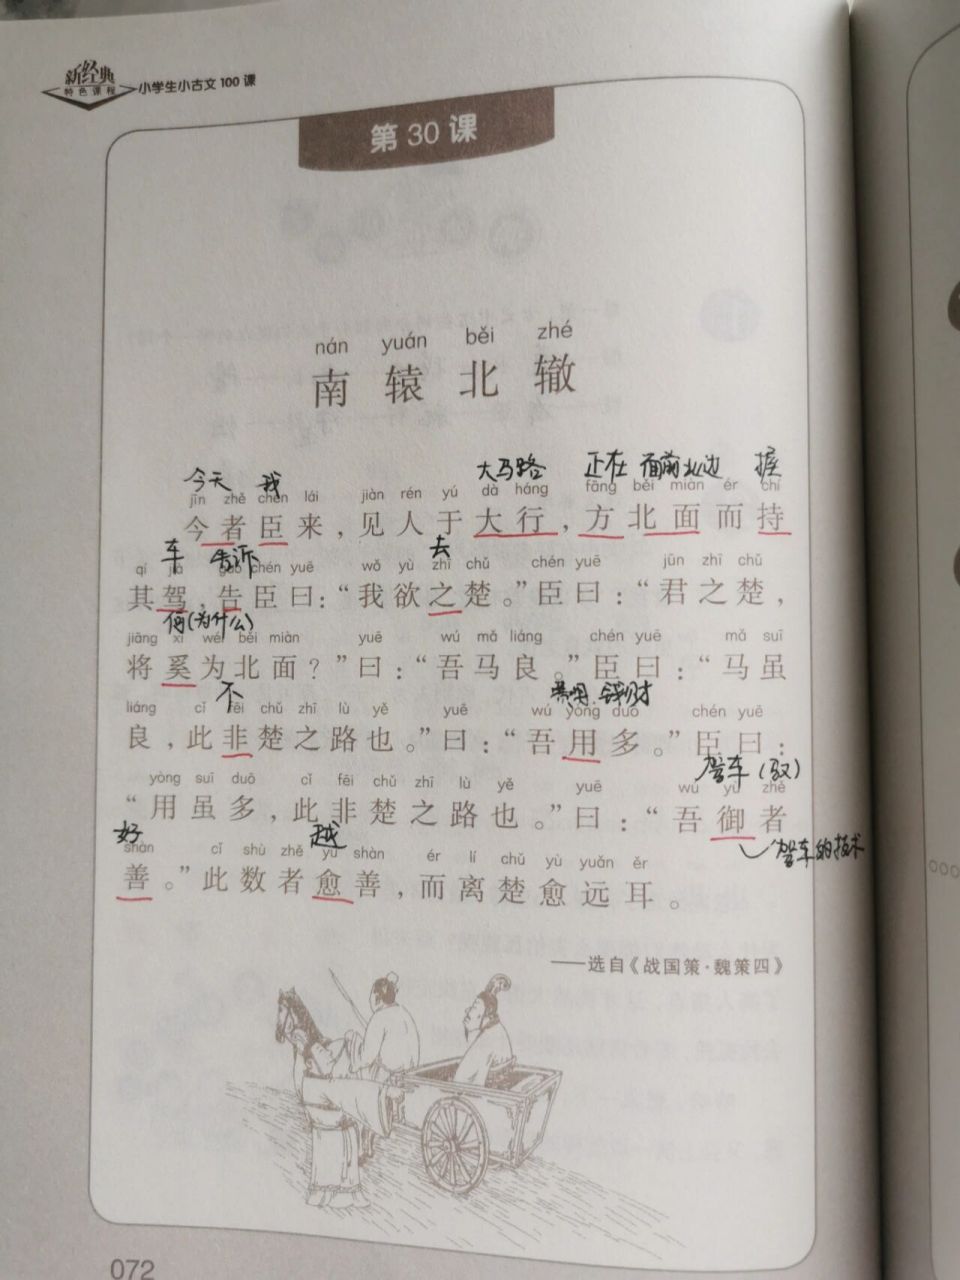 新经典
特色课程
小学生小古文100课
第30课
nán yuán běi zhé
南辕北辙
今天 我 大马路 正在 面前北边 握
jīn zhě chén lái jiàn rén yú dà háng fāng běi miàn ér chí
今者臣来，见人于大行，方北面而持
车 告诉 去
qí jià gào chén yuē wǒ yù zhī chǔ chén yuē jūn zhī chǔ
其驾，告臣曰：“我欲之楚。”臣曰：“君之楚，
何(为什么)
jiāng xī wéi běi miàn yuē wú mǎ liáng chén yuē mǎ suī
将奚为北面？”曰：“吾马良。”臣曰：“马虽
不 钱财
liáng cǐ fēi chǔ zhī lù yě yuē wú yòng duō chén yuē
良，此非楚之路也。”曰：“吾用多。”臣曰：
驾车(驭)
yòng suī duō cǐ fēi chǔ zhī lù yě yuē wú yù zhě
“用虽多，此非楚之路也。”曰：“吾御者
好 越 驾车的技术
shàn cǐ shù zhě yù shàn ér lí chǔ yù yuǎn ěr
善。”此数者愈善，而离楚愈远耳。
——选自《战国策·魏策四》
072